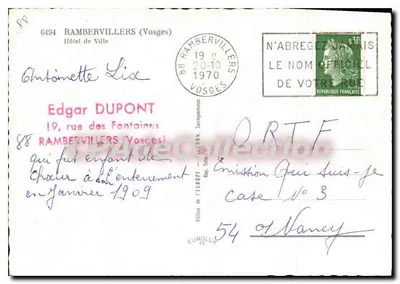 88
6494 RAMBERVILLERS (Vosges)
Hôtel de Ville
88 RAMBERVILLERS
20-10
1970
VOSGES
N'ABREGEZ JAMAIS
LE NOM OFFICIEL
DE VOTRE RUE
0,30
REPUBLIQUE FRANCAISE
Antoinette Lix
Edgar DUPONT
19, rue des Fontaines
88 RAMBERVILLERS (Vosges)
qui fut enfant de
Chœur à son enterrement
en Janvier 1909
O R T F
Emission Qui suis-je
CASE N° 3
54 Nancy